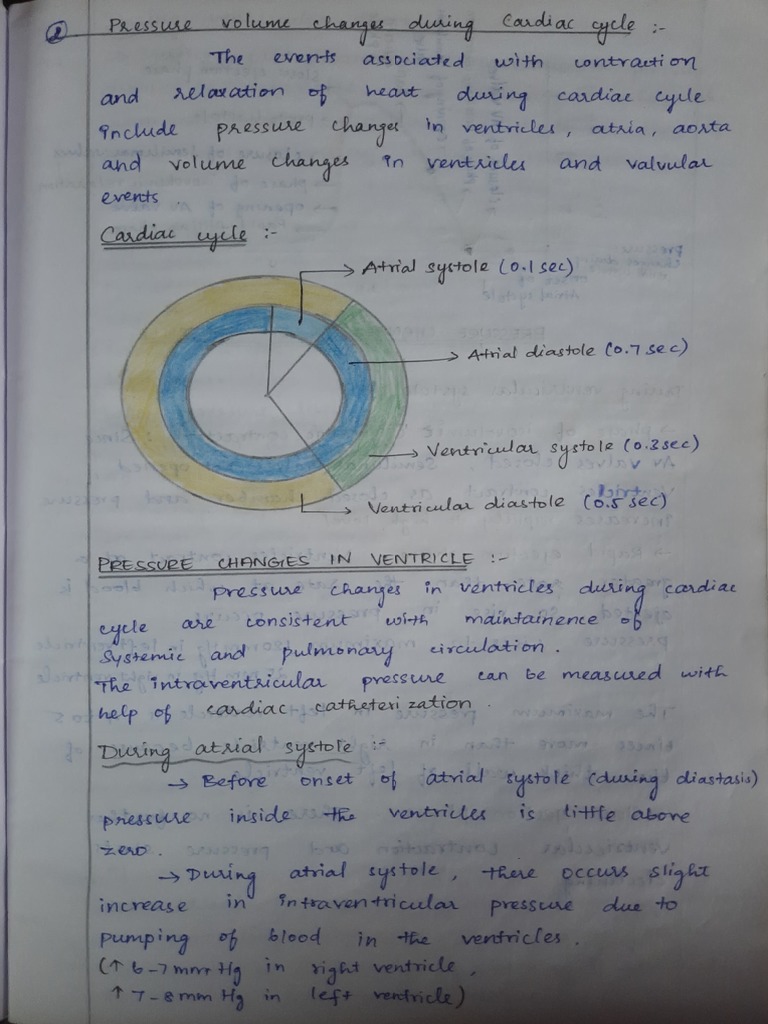 2 Pressure volume changes during Cardiac cycle :-
The events associated with contraction
and relaxation of heart during cardiac cycle
include pressure changes in ventricles, atria, aorta
and volume changes in ventricles and valvular
events
Cardiac cycle :-
→ Atrial systole (0.1 sec)
→ Atrial diastole (0.7 sec)
→ Ventricular systole (0.3sec)
→ Ventricular diastole (0.5 sec)
PRESSURE CHANGES IN VENTRICLE :-
pressure changes in ventricles during cardiac
cycle are consistent with maintainence of
systemic and pulmonary circulation.
The intraventricular pressure can be measured with
help of cardiac catheterization.
During atrial systole :-
→ Before onset of atrial systole (during diastasis)
pressure inside the ventricles is little above
zero.
→ During atrial systole, there occurs slight
increase in intraventricular pressure due to
pumping of blood in the ventricles.
(↑ 6-7 mm Hg in right ventricle,
↑ 7-8 mm Hg in left ventricle)